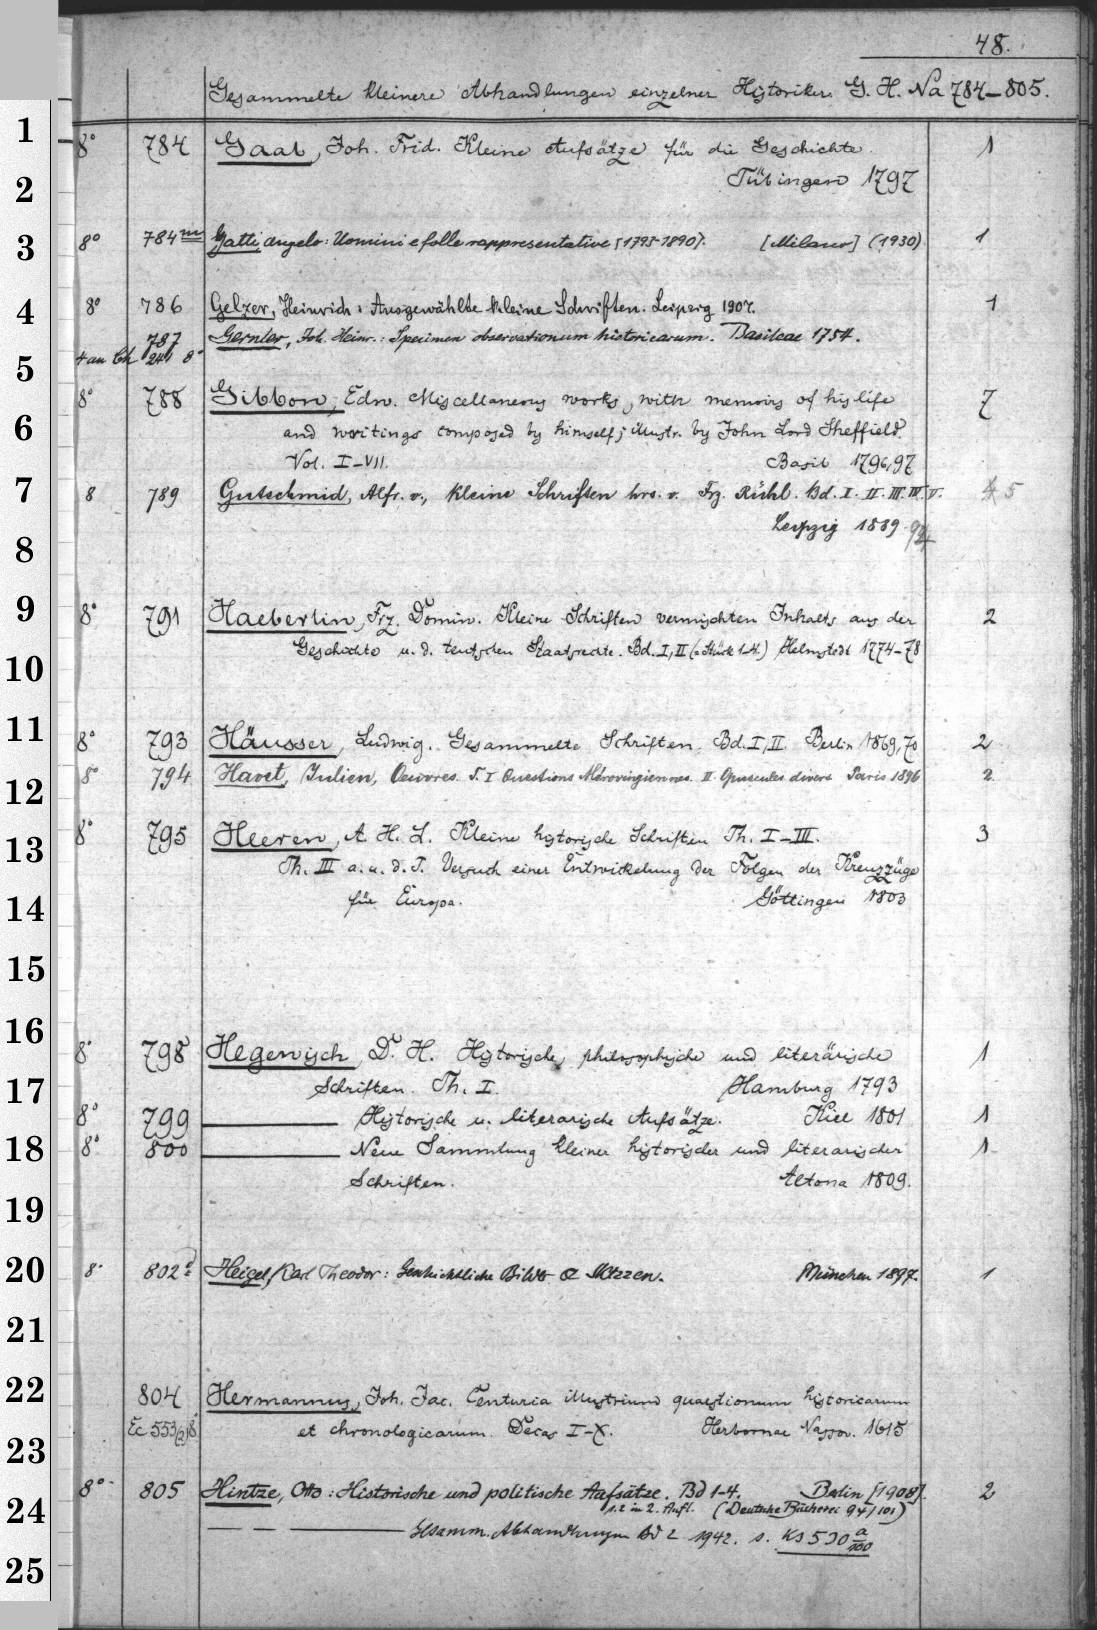 48.
Gesammelte kleinere Abhandlungen einzelner Historiker. G. H. Na 784–805.
1
8° 784 Gaab, Joh. Frid. Kleine Aufsätze für die Geschichte. 1
2
Tübingen 1797
3
8° 784m Gatti, Angelo: Uomini e folle rappresentative [1793-1890]. [Milano] (1930) 1
4
8° 786 Gelzer, Heinrich: Ausgewählte kleine Schriften. Leipzig 1907. 1
787 Gernler, Joh. Heinr.: Specimen observationum historicarum. Basileae 1754.
5
4 an 8°
8° 788 Gibbon, Edw. Miscellaneous works, with memoirs of his life 7
6
and writings composed by himself; illustr. by John Lord Sheffield.
Vol. I–VII. Basil 1796,97
7
8 789 Gutschmid, Alfr. v., kleine Schriften hrs. v. Frz. Rühl. Bd. I. II. III. IV. V. 5
8
Leipzig 1889-94
9
8° 791 Haeberlin, Frz. Domin. Kleine Schriften vermischten Inhalts aus der 2
10
Geschichte u. d. teutschen Staatsrechte. Bd. I, II (= Stück 1-4.) Helmstedt 1774–78
11
8° 793 Häusser, Ludwig. Gesammelte Schriften. Bd. I, II. Berlin 1869,70 2
8° 794 Havet, Julien, Oeuvres. T. I Questions Mérovingiennes. II. Opuscules divers Paris 1896 2
12
8° 795 Heeren, A. H. L. Kleine historische Schriften Th. I–III. 3
13
Th. III a. u. d. T. Versuch einer Entwickelung der Folgen der Kreuzzüge
14
für Europa. Göttingen 1803
15
16
8° 798 Hegewisch, D. H. Historische, philosophische und literärische 1
17
Schriften. Th. I. Hamburg 1793
8° 799 ——— Historische u. literarische Aufsätze. Kiel 1801 1
18
8° 800 ——— Neue Sammlung kleiner historischer und literarischer 1
Schriften. Altona 1809.
19
20
8° 802a Heigel, Karl Theodor: Geschichtliche Bilder & Skizzen. München 1897. 1
21
22
804 Hermannus, Joh. Jac. Centuria illustrium quaestionum historicarum
Ec 553(2) 8° et chronologicarum. Decas I–X. Herbornae Nassov. 1615
23
8° 805 Hintze, Otto: Historische und politische Aufsätze. Bd 1-4. Berlin [1908]. 2
24
1.2 in 2. Aufl. (Deutsche Bücherei 94/101)
— — ——— Gesamm. Abhandlungen Bd 2 1942. s. Ks 530 a/100
25